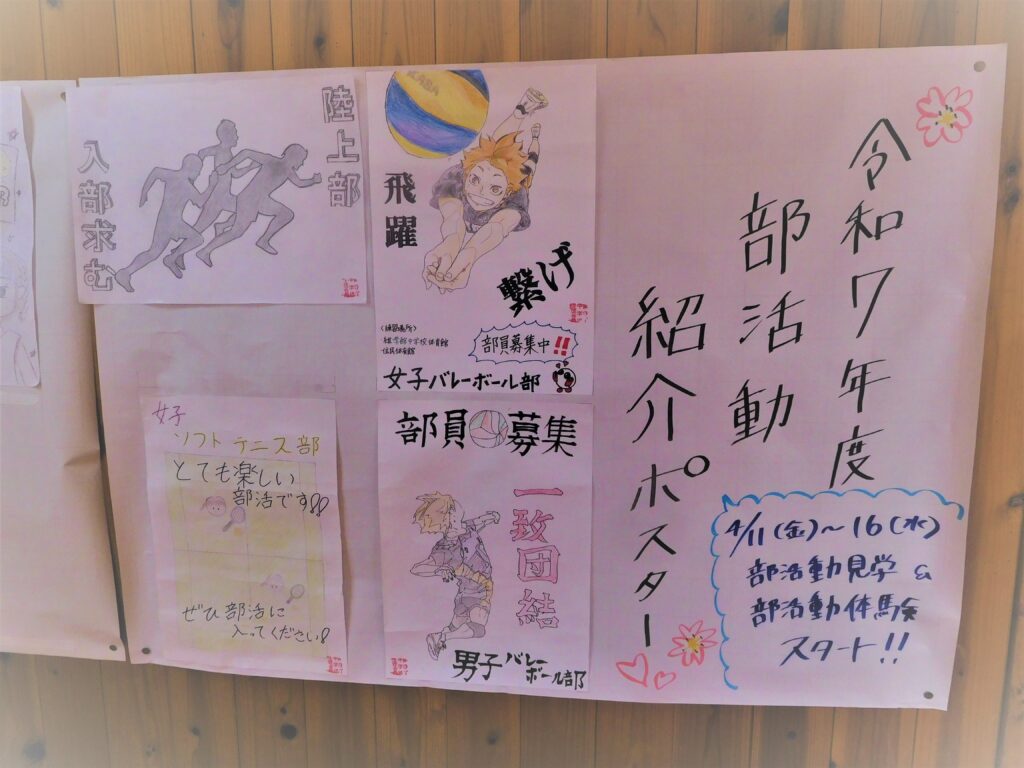 令和7年度
部活動
紹介ポスター
4/11(金)～16(水)
部活動見学&
部活動体験
スタート!!
陸上部
入部求む
飛躍
繋げ
<練習場所>
・住民体育館
部員募集中!!
女子バレーボール部
部員募集
一致団結
男子バレーボール部
女子
ソフトテニス部
とても楽しい
部活です!!
ぜひ部活に
入ってください!